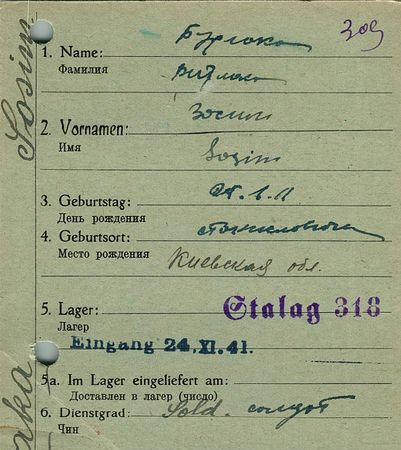 309
1. Name: Бурлака
Фамилия
2. Vornamen: Зосим
Имя Sosim
3. Geburtstag:
День рождения
4. Geburtsort:
Место рождения Киевская обл.
5. Lager: Stalag 318
Лагер
Eingang 24. XI. 41.
5a. Im Lager eingeliefert am:
Доставлен в лагер (число)
6. Dienstgrad: Sold. солдат
Чин
Sosim